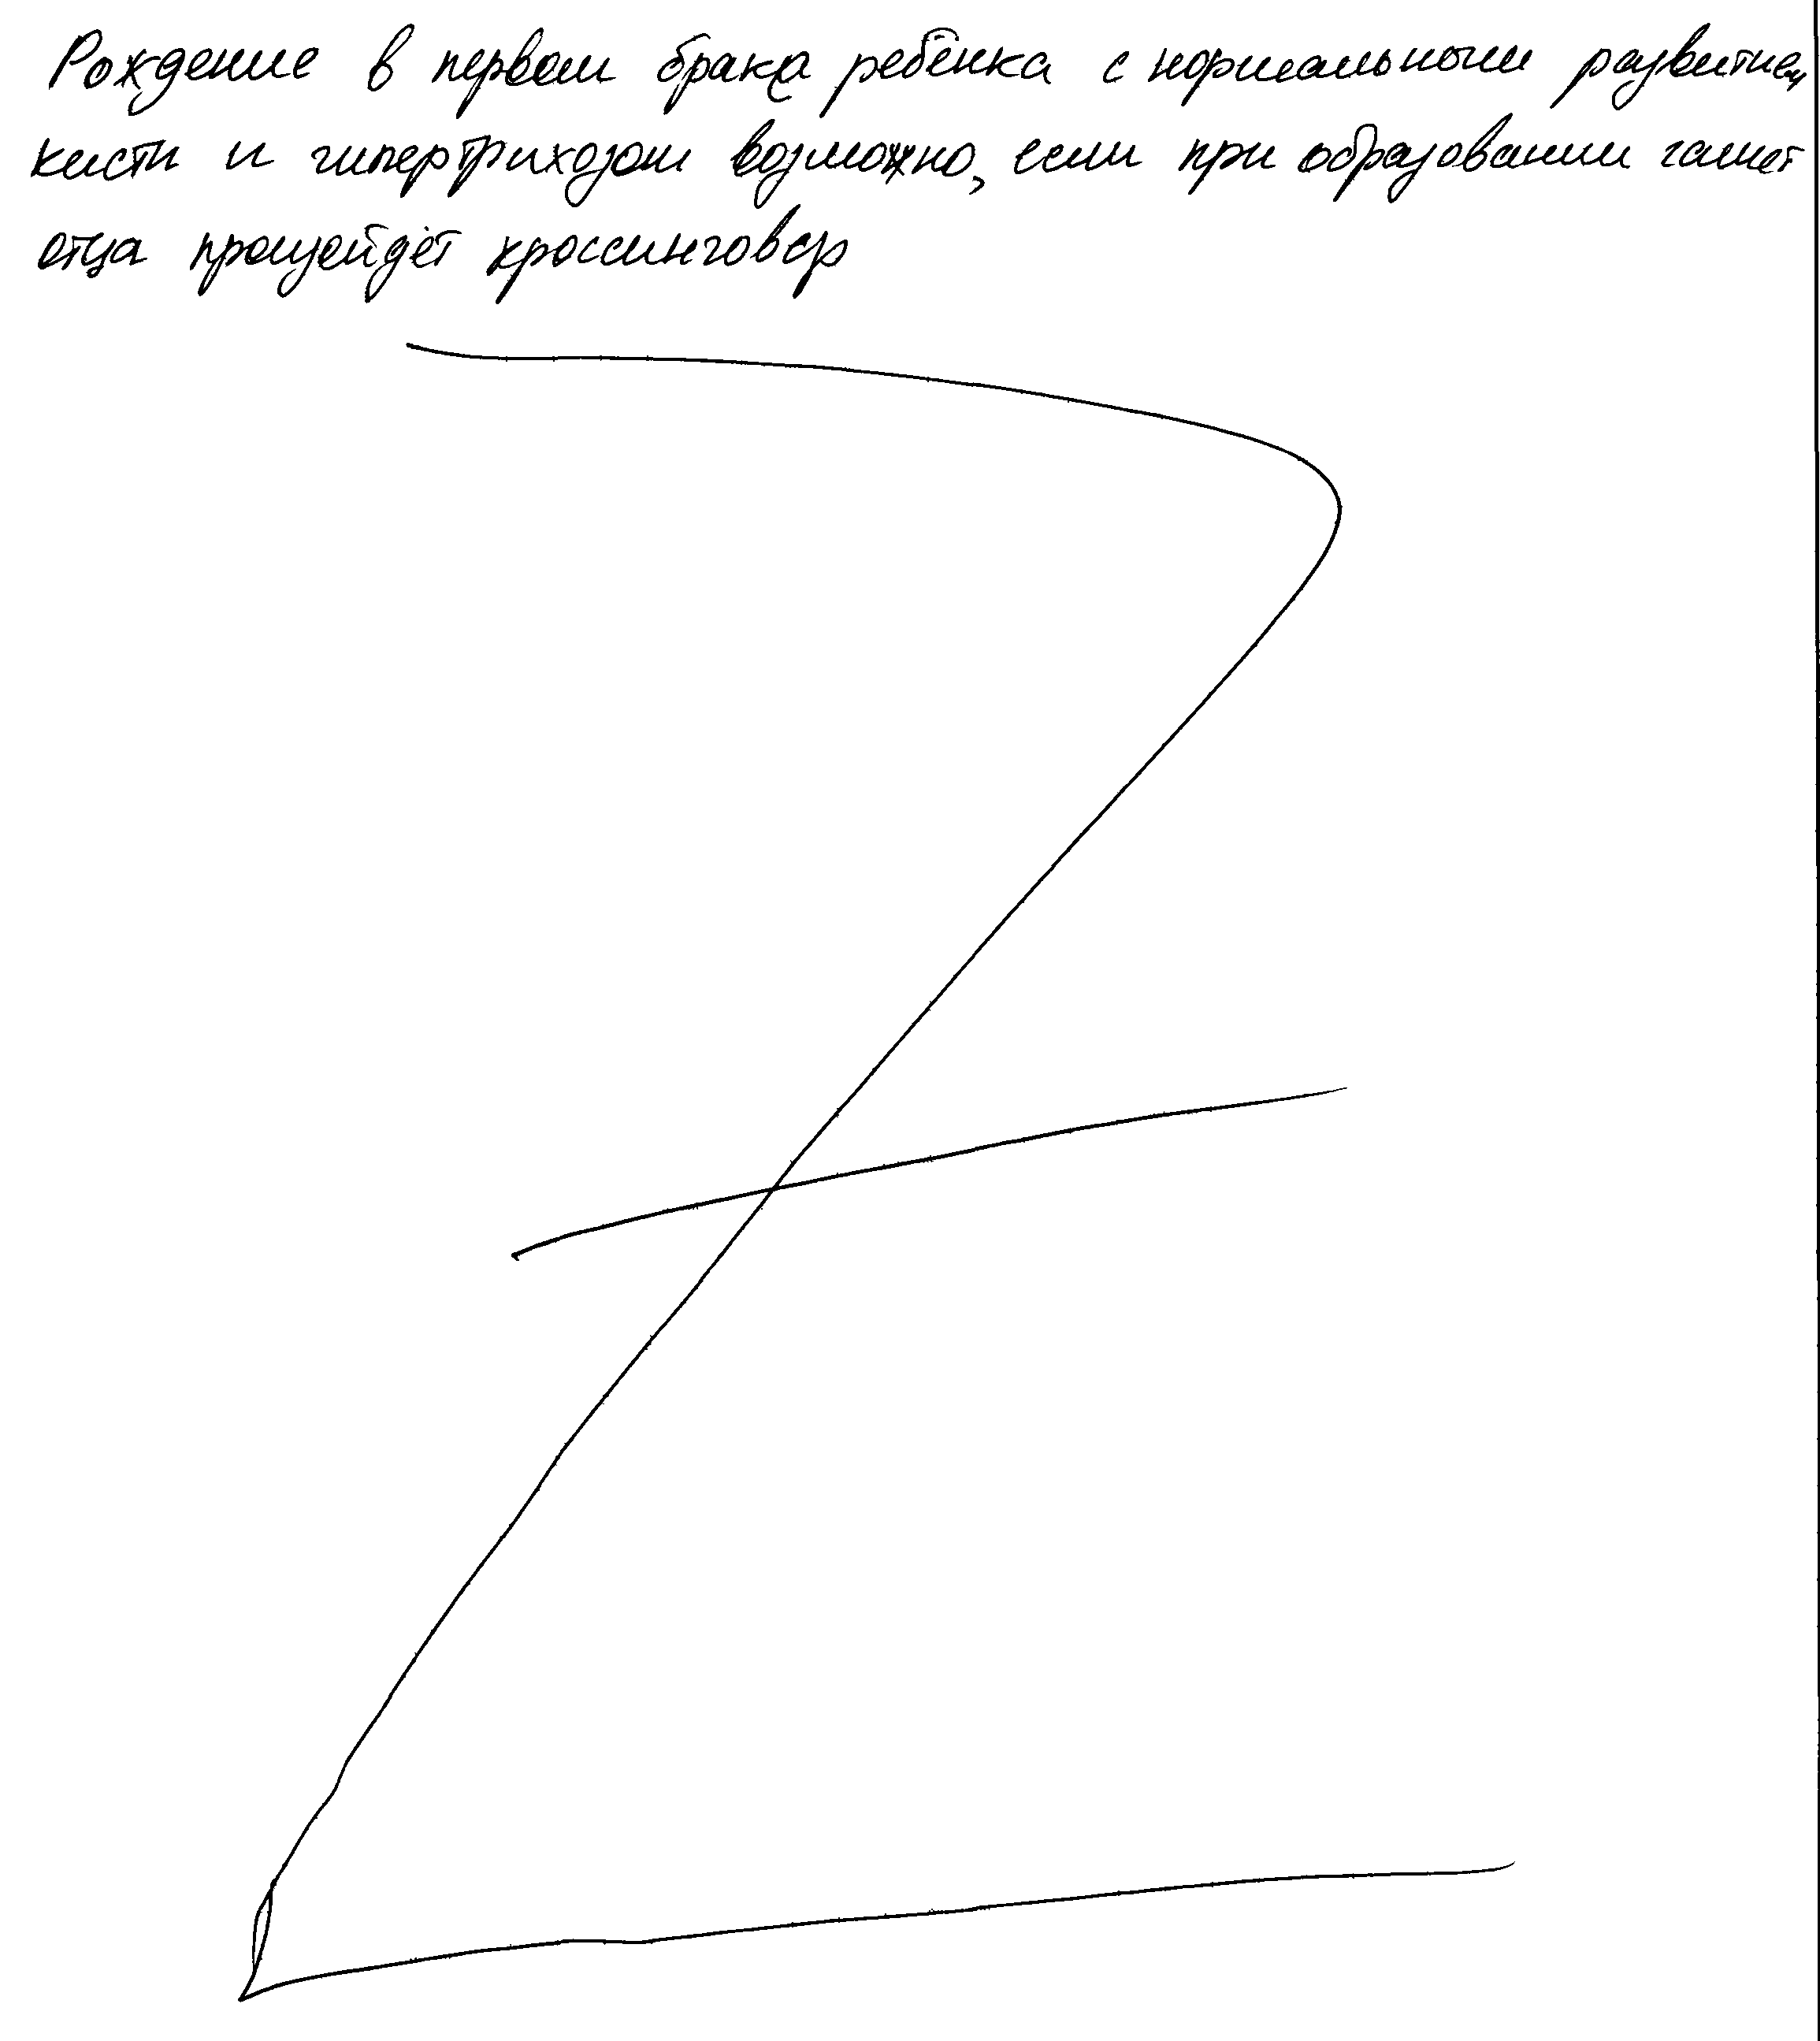 Рождение в первом браке ребёнка с нормальным развитием
кисти и гипертрихозом возможно, если при образовании гамет
отца произойдёт кроссинговер